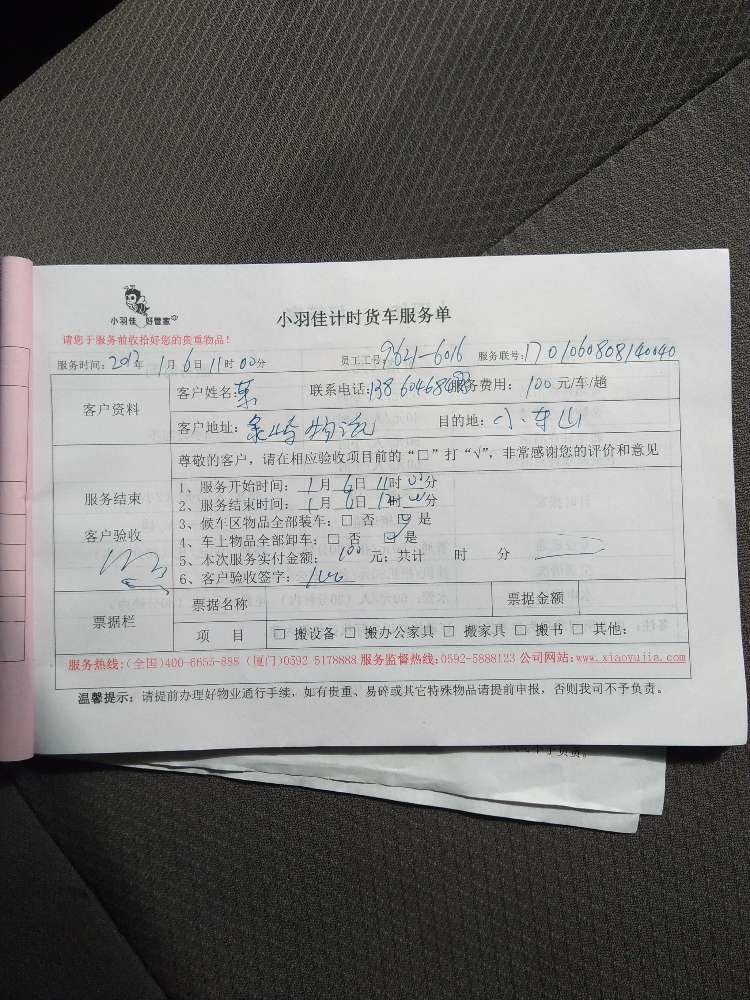 小羽佳 好管家
小羽佳计时货车服务单
请您于服务前收拾好您的贵重物品!
服务时间: 2017年 1月 6日 11时 00分 员工工号: 9621-6016 服务联号: 1701060808140040
客户资料
客户姓名: 联系电话: 服务费用: 100 元/车/趟
客户地址: 目的地: 小东山
尊敬的客户,请在相应验收项目前的“□”打“√”,非常感谢您的评价和意见
服务结束
客户验收
1、服务开始时间: 1月 6日 11时 00分
2、服务结束时间: 1月 6日 12时 00分
3、候车区物品全部装车: □ 否 ☑ 是
4、车上物品全部卸车: □ 否 ☑ 是
5、本次服务实付金额: 100 元; 共计 时 分
6、客户验收签字:
票据栏
票据名称 票据金额
项 目 □ 搬设备 □ 搬办公家具 □ 搬家具 □ 搬书 □ 其他:
服务热线:(全国)400-6655-888 (厦门)0592 5178888 服务监督热线:0592-5888123 公司网站:www.xiaoyujia.com
温馨提示: 请提前办理好物业通行手续, 如有贵重、易碎或其它特殊物品请提前申报, 否则我司不予负责。